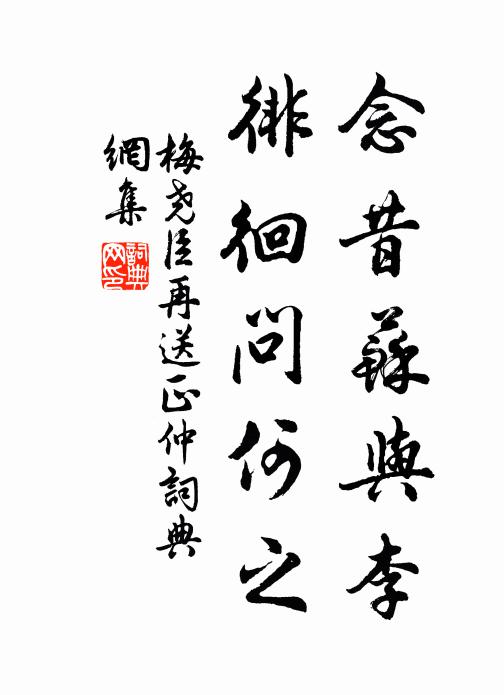 念昔蘇與李
徘徊問何之
梅堯臣再送正仲詞典
網集
詞典網印